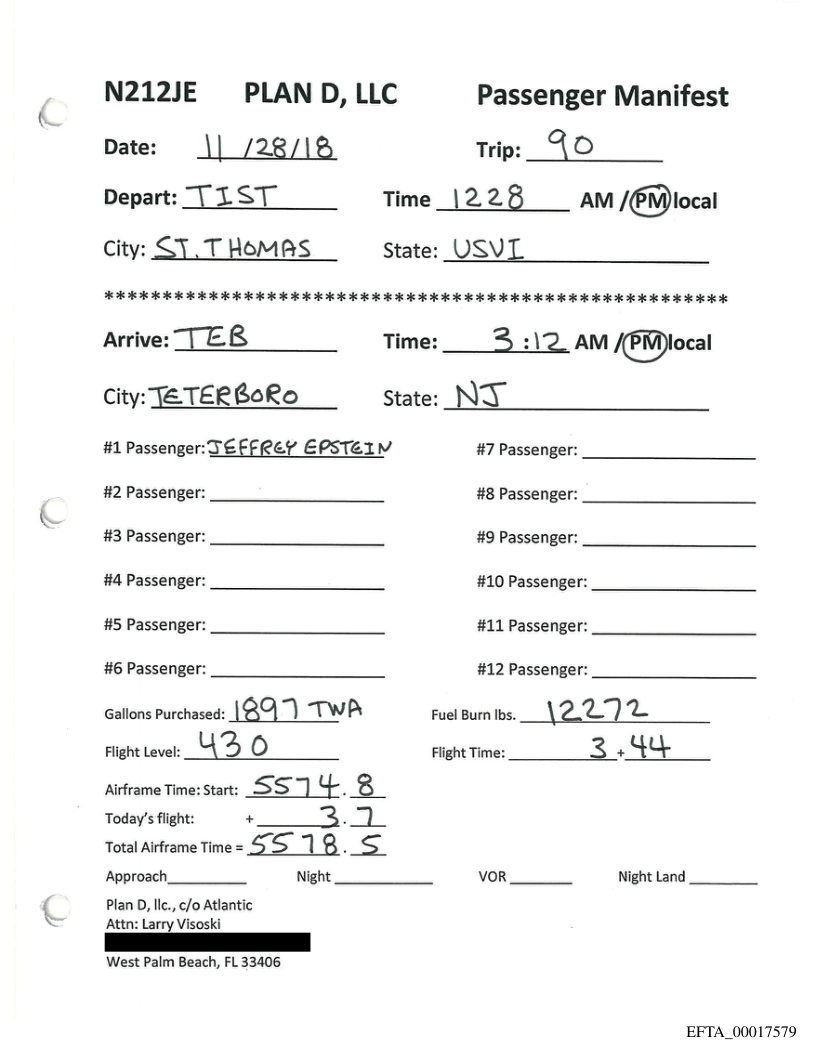 N212JE PLAN D, LLC Passenger Manifest
Date: 11/28/18 Trip: 90
Depart: TIST Time 1228 AM / PM local
City: ST. THOMAS State: USVI
******************************************************
Arrive: TEB Time: 3:12 AM / PM local
City: TETERBORO State: NJ
#1 Passenger: JEFFREY EPSTEIN #7 Passenger:
#2 Passenger: #8 Passenger:
#3 Passenger: #9 Passenger:
#4 Passenger: #10 Passenger:
#5 Passenger: #11 Passenger:
#6 Passenger: #12 Passenger:
Gallons Purchased: 1897 TWA Fuel Burn lbs. 12272
Flight Level: 430 Flight Time: 3 + 44
Airframe Time: Start: 5574.8
Today's flight: + 3.7
Total Airframe Time = 5578.5
Approach Night VOR Night Land
Plan D, llc., c/o Atlantic
Attn: Larry Visoski
West Palm Beach, FL 33406
EFTA_00017579